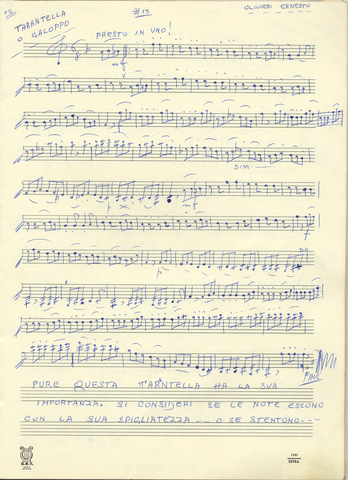 13
#13
OLIVIERI ERNESTO
TARANTELLA
O GALOPPO
PRESTO IN UNO!
mf
f
DIM
mf
f
DO
FINE
PURE QUESTA TARNTELLA HA LA SUA
IMPORTANZA. SI CONSIDERI SE LE NOTE ESCONO
CON LA SUA SPIGLIATEZZA --- O SE STENTONO ---
EXTRA